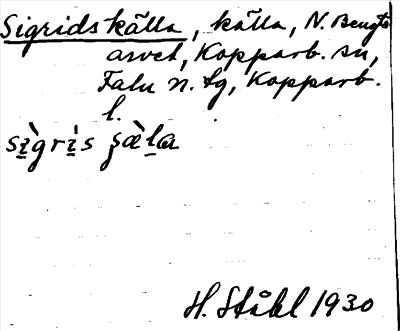 Sigrids källa, källa, N. Bengts
arvet, Kopparb. sn,
Falu n. tg, Kopparb.
l.
sì̱grì̱s ʂæ̀ḻa
H. Ståhl 1930